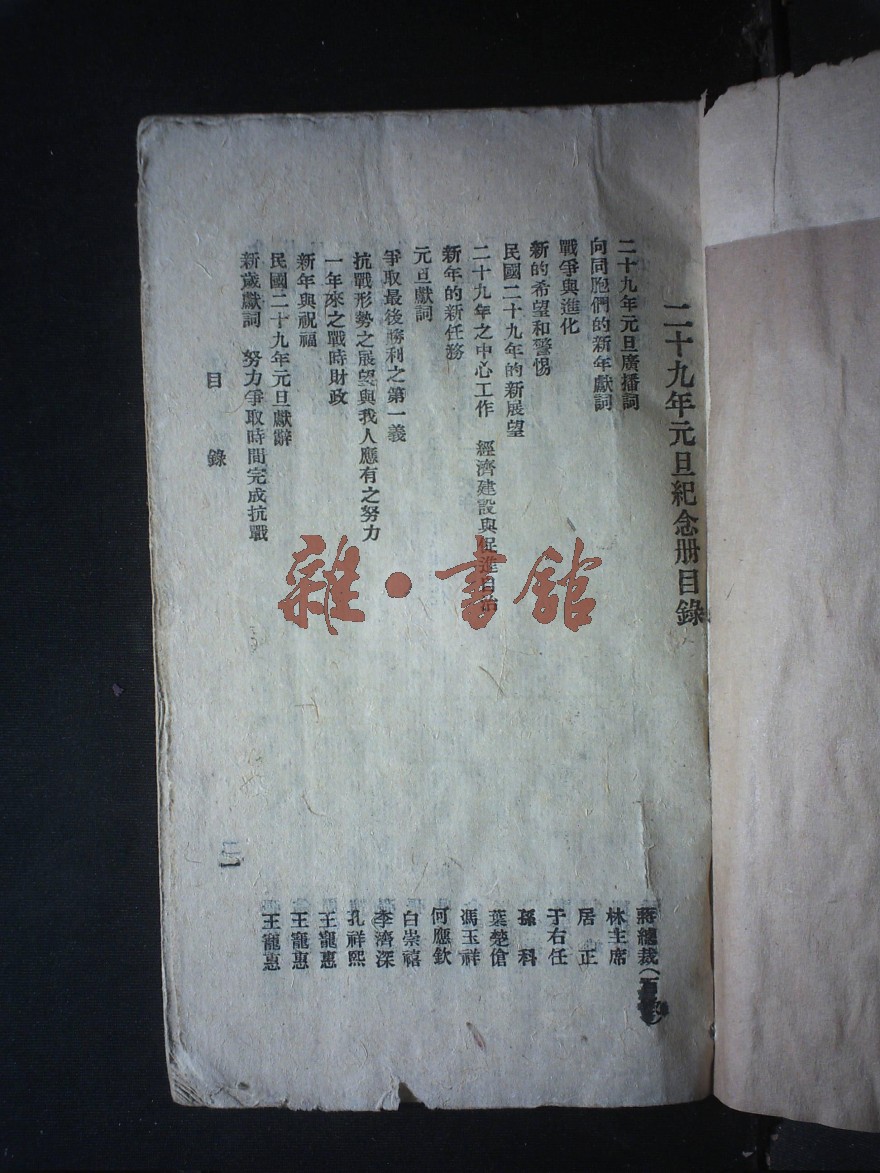 二十九年元旦紀念册目錄
二十九年元旦廣播詞 蔣總裁
向同胞們的新年獻詞 林主席
戰爭與進化 居 正
新的希望和警惕 于右任
民國二十九年的新展望 孫 科
二十九年之中心工作 經濟建設與促進自治 葉楚傖
新年的新任務 馮玉祥
元旦獻詞 何應欽
爭取最後勝利之第一義 白崇禧
抗戰形勢之展望與我人應有之努力 李濟深
一年來之戰時財政 孔祥熙
新年與祝福 王寵惠
民國二十九年元旦獻辭 王寵惠
新歲獻詞 努力爭取時間完成抗戰 王寵惠
目 錄 一
雜·書館